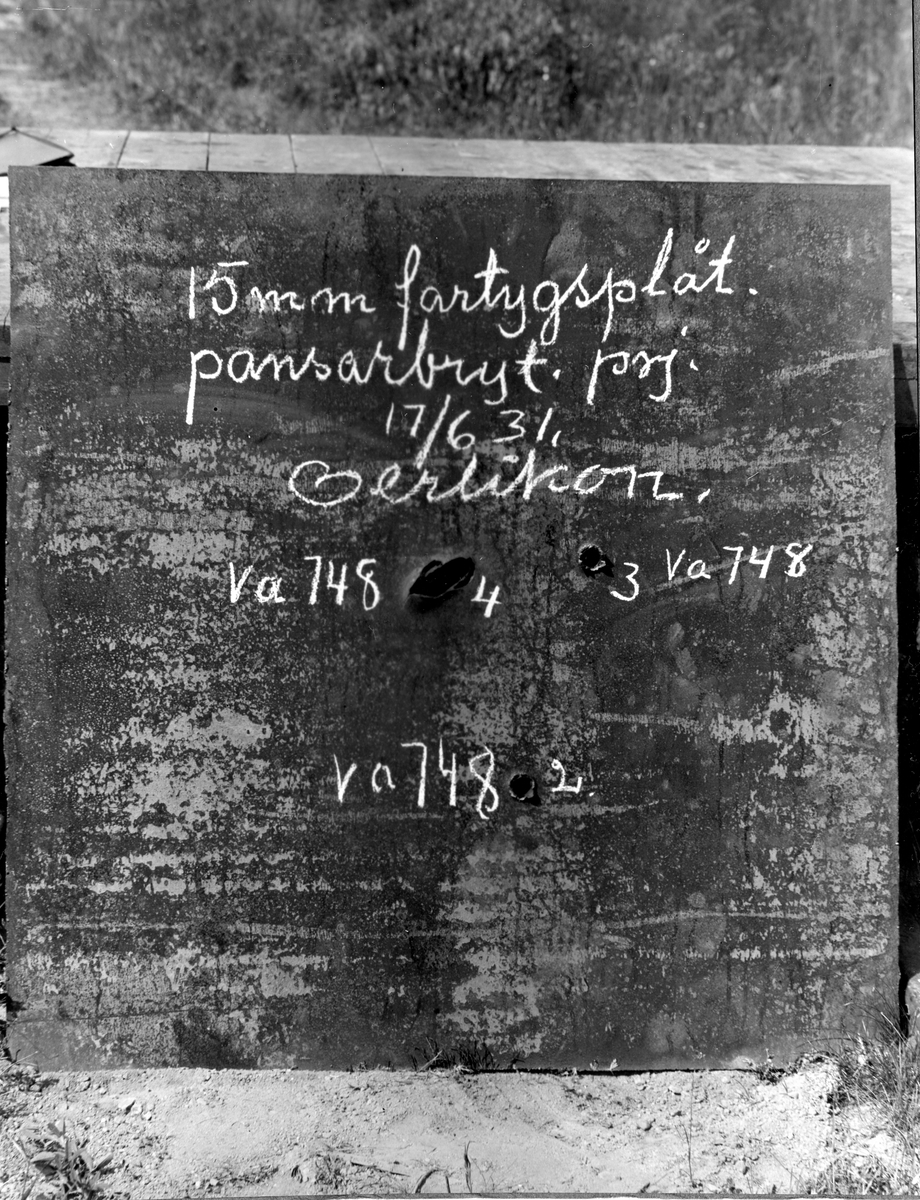 15mm fartygsplåt.
pansarbryt. prj.
17/6 31.
Oerlikon.
Va 748 4 3 Va 748
Va 748 2.